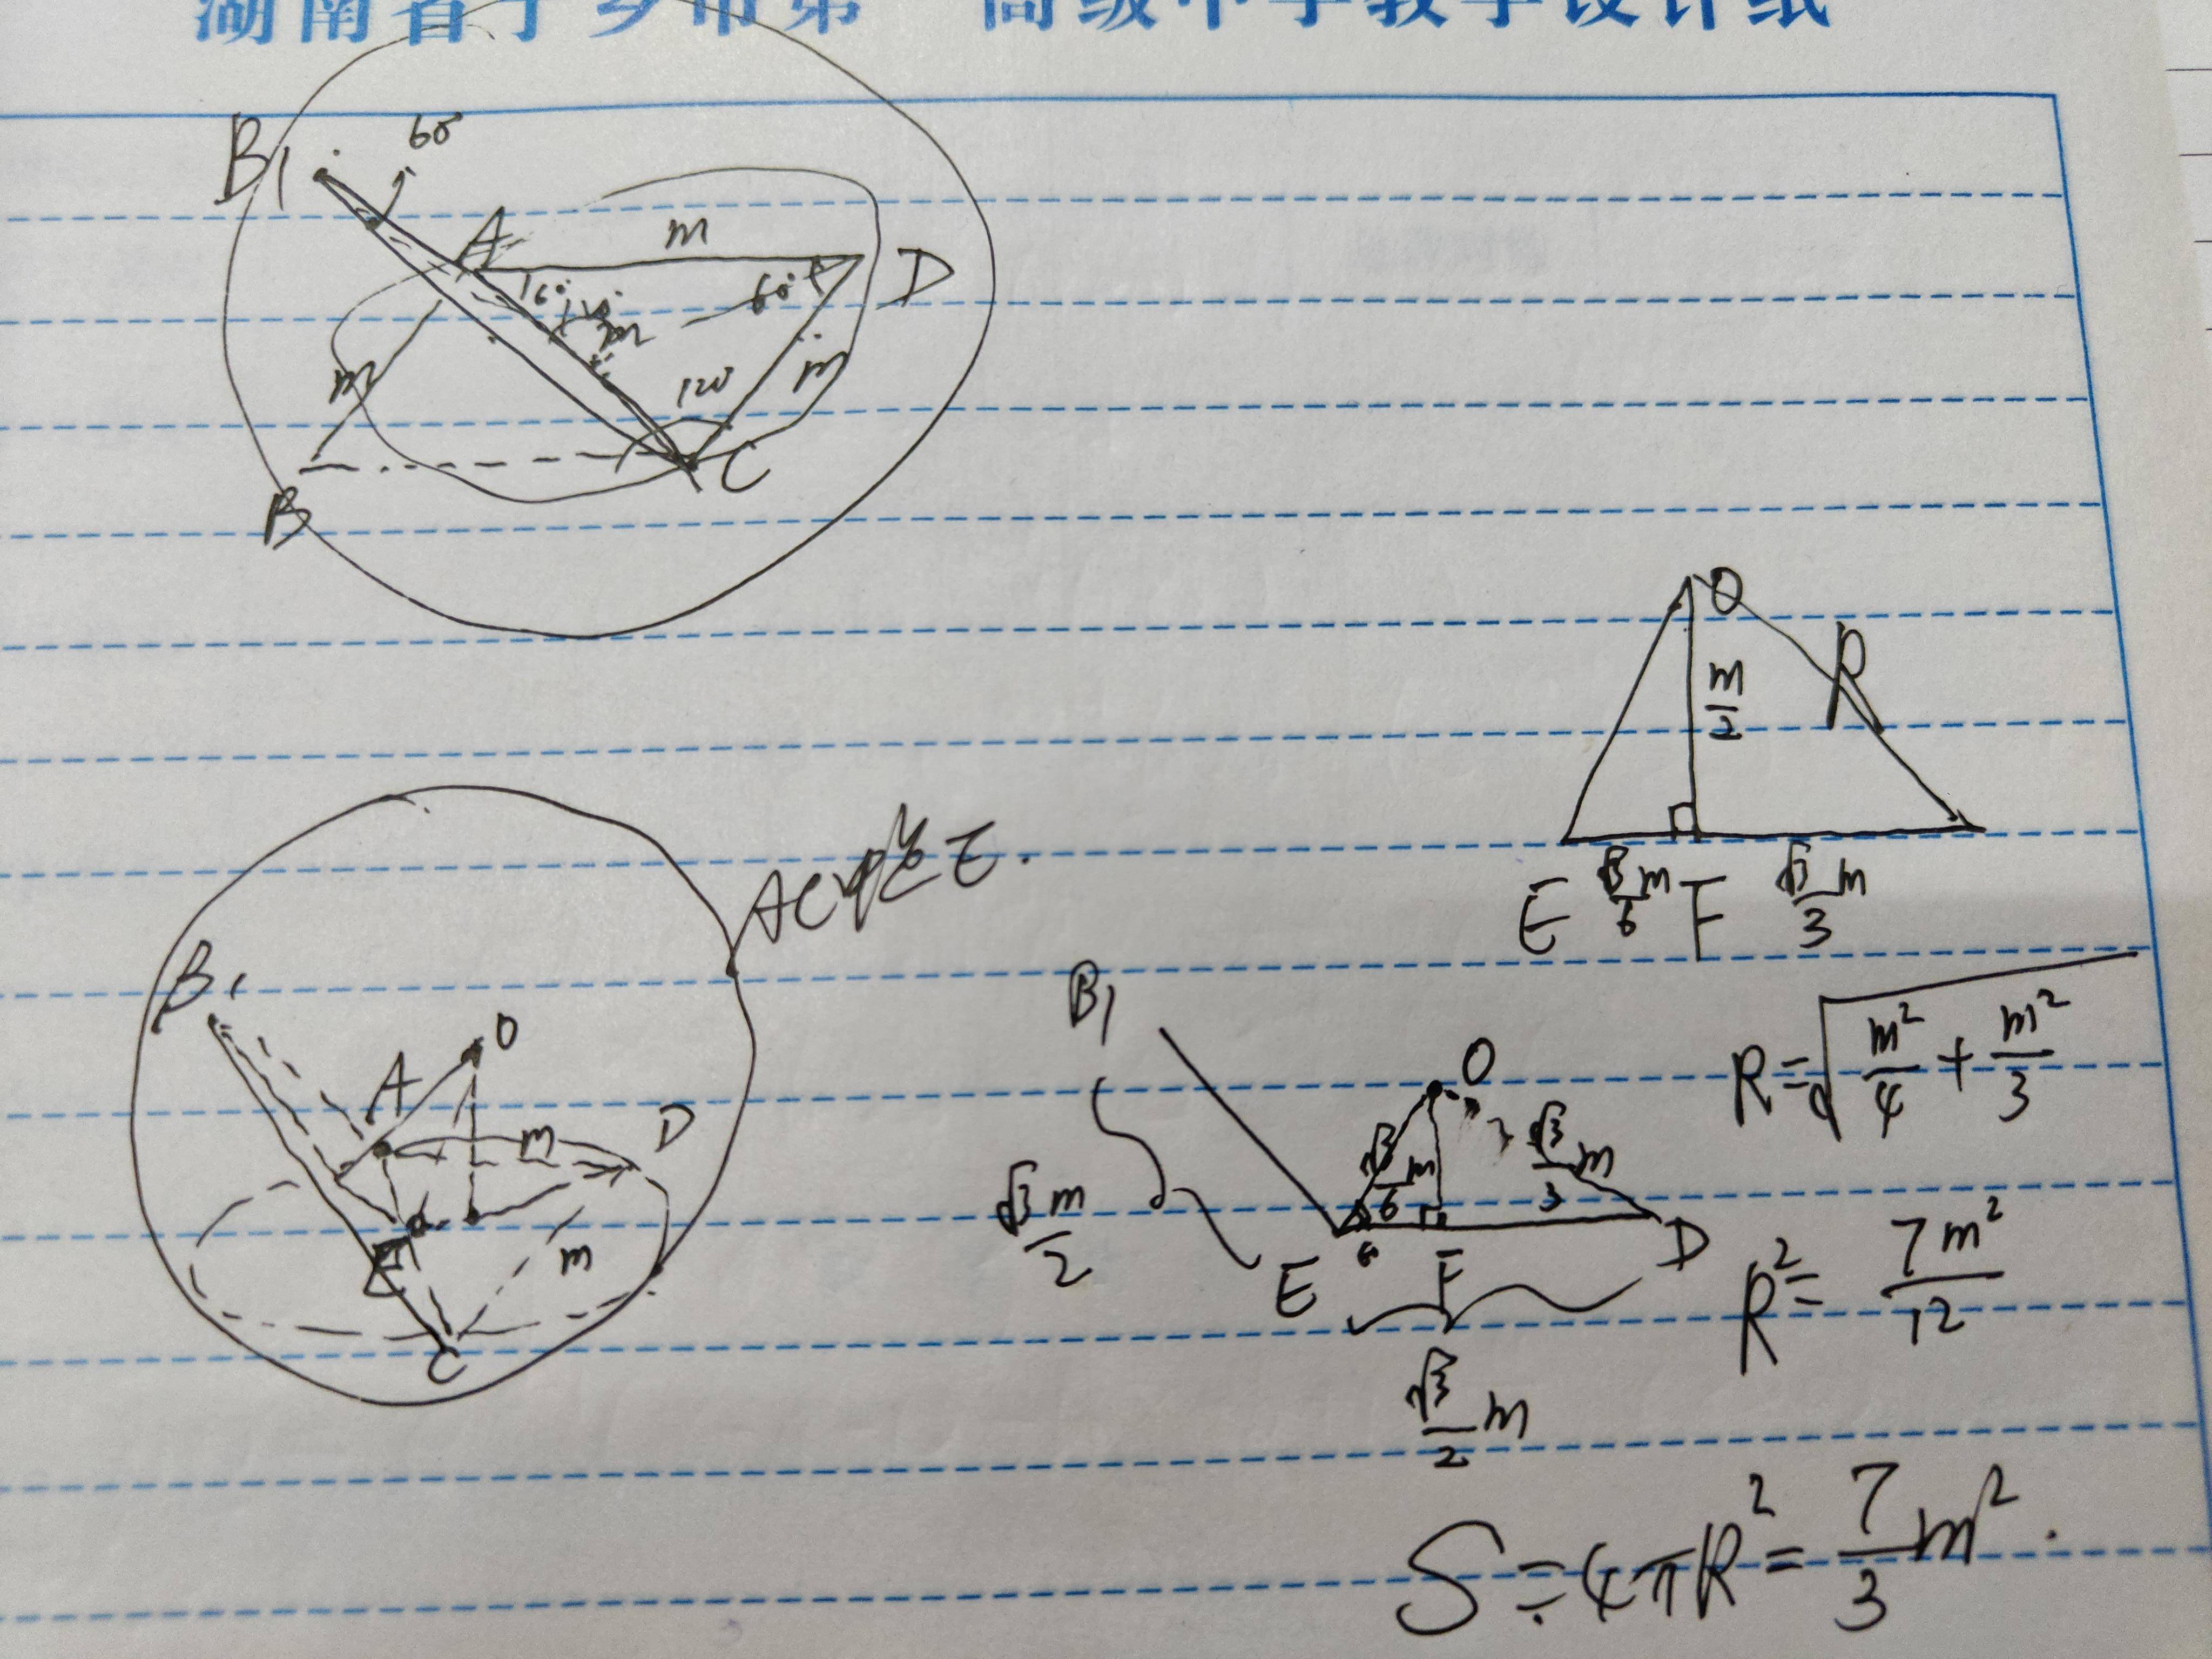 湖南省宁乡市第一高级中学教学设计纸
B₁ 60°
A m D
60° 120° 60°
m m
m 120°
B C
O
m/2 R
E √3/6 m F √3/3 m
AC中点E.
B₁ O
A m D
E m
C
B₁ O
√3 m/2 √3/6 m √3/3 m
E F D
√3/2 m
R=√(m²/4+m²/3)
R²=7m²/12
S=4πR²=7/3 m².